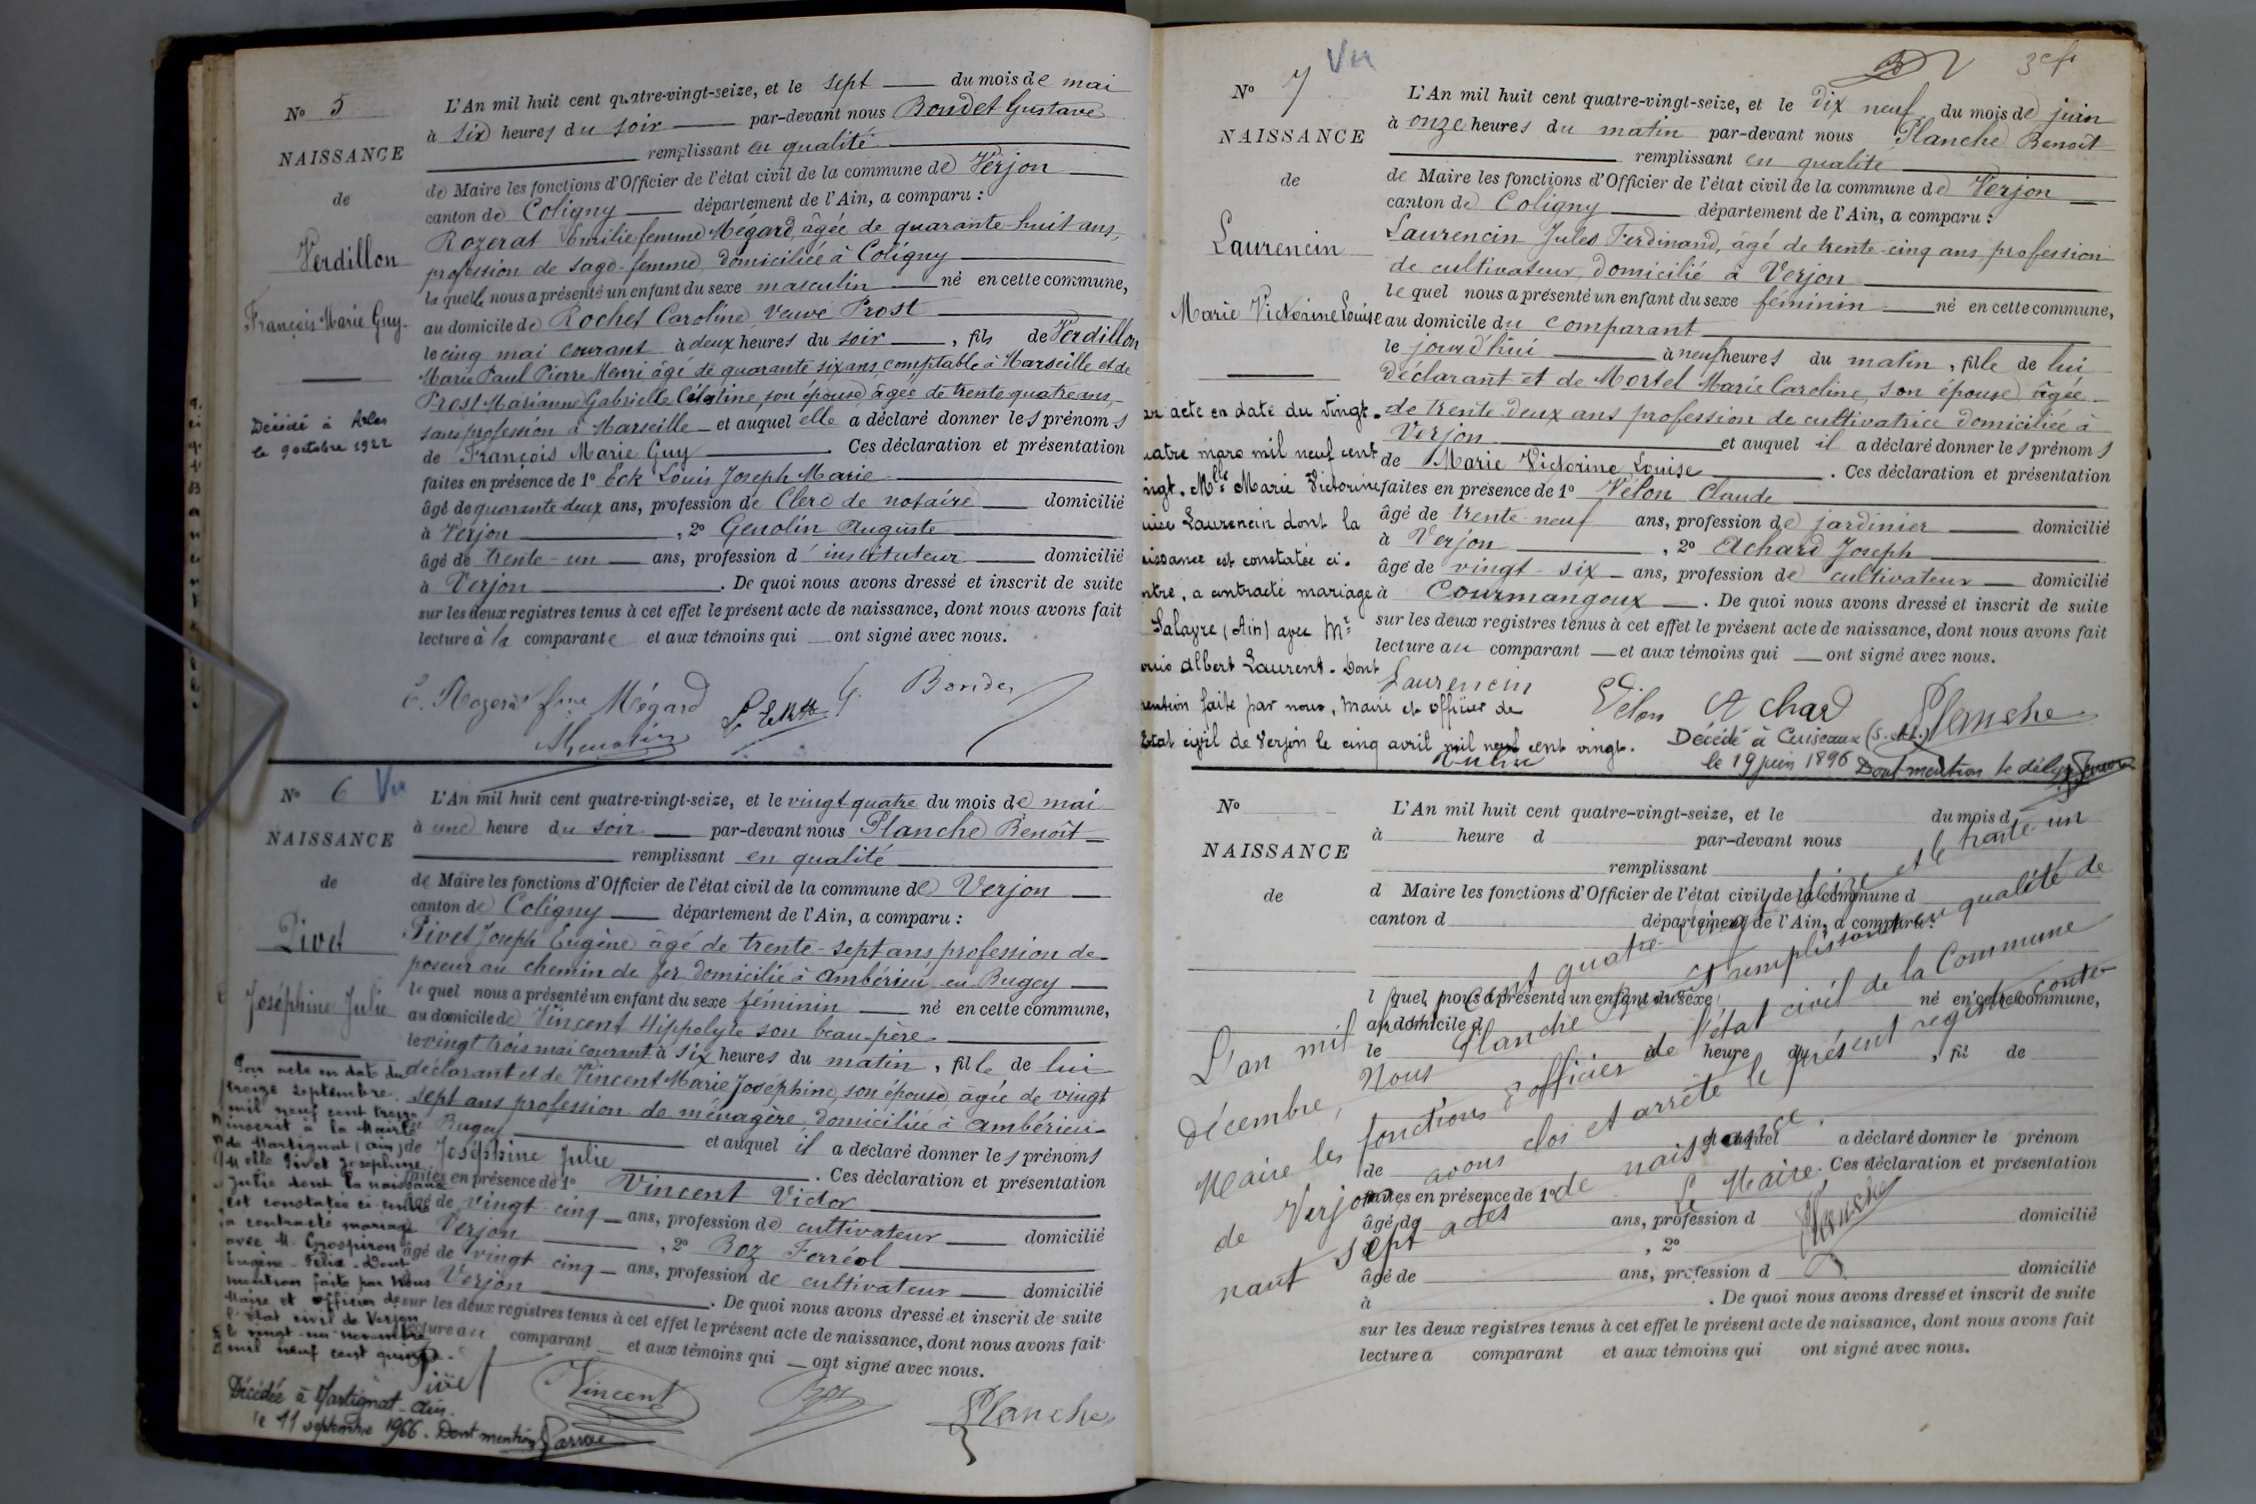 N° 5
NAISSANCE
de
Verdillon
François Marie Guy
Décédé à Arles
le 9 octobre 1922
L'An mil huit cent quatre-vingt-seize, et le sept du mois de mai
à six heures du soir par-devant nous Boudet Gustave
remplissant en qualité
de Maire les fonctions d'Officier de l'état civil de la commune de Verjon
canton de Coligny département de l'Ain, a comparu :
Rozerat Emilie femme Mégard, âgée de quarante-huit ans,
profession de sage-femme, domiciliée à Coligny
laquelle nous a présenté un enfant du sexe masculin né en cette commune,
au domicile de Rochet Caroline, Veuve Prost
le cinq mai courant à deux heures du soir, fils de Verdillon
Marie Paul Pierre Henri âgé de quarante six ans, comptable à Marseille et de
Prost Marianne Gabrielle Célestine, son épouse âgée de trente quatre ans,
sans profession à Marseille et auquel elle a déclaré donner les prénoms
de François Marie Guy. Ces déclaration et présentation
faites en présence de 1° Eck Louis Joseph Marie
âgé de quarante deux ans, profession de Clerc de notaire domicilié
à Verjon, 2° Genolin Auguste
âgé de trente-un ans, profession d'instituteur domicilié
à Verjon. De quoi nous avons dressé et inscrit de suite
sur les deux registres tenus à cet effet le présent acte de naissance, dont nous avons fait
lecture à la comparante et aux témoins qui ont signé avec nous.
E. Rozerat fme Mégard
N° 6 Vu
NAISSANCE
de
Pivet
Joséphine Julie
Par acte en date du
treize septembre
mil neuf cent treize
inscrit à la Mairie
de Martignat (Ain)
Melle Pivet Joséphine
Julie dont la naissance
est constatée ci-contre
a contracté mariage
avec M. Grospiron
Eugène-Félix. Dont
mention faite par Nous
Maire et officier de
l'état civil de Verjon
le vingt-un novembre
mil neuf cent
Décédée à Martignat-Ain
le 11 septembre 1966. Dont mention
L'An mil huit cent quatre-vingt-seize, et le vingt quatre du mois de mai
à une heure du soir par-devant nous Planche Benoît
remplissant en qualité
de Maire les fonctions d'Officier de l'état civil de la commune de Verjon
canton de Coligny département de l'Ain, a comparu :
Pivet Joseph Eugène âgé de trente-sept ans profession de
poseur au chemin de fer domicilié à Ambérieu en Bugey
lequel nous a présenté un enfant du sexe féminin né en cette commune,
au domicile de Vincent Hippolyte son beau-père
le vingt trois mai courant à six heures du matin, fille de lui
déclarant et de Vincent Marie Joséphine, son épouse, âgée de vingt
sept ans profession de ménagère, domiciliée à Ambérieu
Bugey et auquel il a déclaré donner les prénoms
de Joséphine Julie. Ces déclaration et présentation
faites en présence de 1° Vincent Victor
âgé de vingt-cinq ans, profession de cultivateur domicilié
Verjon, 2° Boz Ferréol
âgé de vingt cinq ans, profession de cultivateur domicilié
Verjon. De quoi nous avons dressé et inscrit de suite
sur les deux registres tenus à cet effet le présent acte de naissance, dont nous avons fait
lecture au comparant et aux témoins qui ont signé avec nous.
Pivet Vincent Boz Planche
Vu
N° 7
NAISSANCE
de
Laurencin
Marie Victorine Louise
acte en date du vingt-
mars mil neuf cent
Mlle Marie Victorine
Laurencin dont la
est constatée ci-
a contracté mariage
Salavre (Ain) avec Mr
Albert Laurent. Dont
faite par nous, Maire et officier de
état civil de Verjon le cinq avril mil neuf cent vingt.
L'An mil huit cent quatre-vingt-seize, et le dix neuf du mois de juin
à onze heures du matin par-devant nous Planche Benoît
remplissant en qualité
de Maire les fonctions d'Officier de l'état civil de la commune de Verjon
canton de Coligny département de l'Ain, a comparu :
Laurencin Jules Ferdinand, âgé de trente-cinq ans profession
de cultivateur, domicilié à Verjon
lequel nous a présenté un enfant du sexe féminin né en cette commune,
au domicile du comparant
le jourd'hui à neuf heures du matin, fille de lui
déclarant et de Mortel Marie Caroline, son épouse âgée
de trente-deux ans profession de cultivatrice domiciliée à
Verjon et auquel il a déclaré donner les prénoms
de Marie Victorine Louise. Ces déclaration et présentation
faites en présence de 1° Vélon Claude
âgé de trente-neuf ans, profession de jardinier domicilié
à Verjon, 2° Achard Joseph
âgé de vingt-six ans, profession de cultivateur domicilié
à Courmangoux. De quoi nous avons dressé et inscrit de suite
sur les deux registres tenus à cet effet le présent acte de naissance, dont nous avons fait
lecture au comparant et aux témoins qui ont signé avec nous.
Laurencin Vélon Achard Planche
Décédé à Cuiseaux (S.-et-L.)
le 19 juin 1896 Dont mention
N°
NAISSANCE
de
L'An mil huit cent quatre-vingt-seize, et le du mois d
à heure d par-devant nous
remplissant
d Maire les fonctions d'Officier de l'état civil de la commune d
canton d département de l'Ain, a comparu :
l quel nous a présenté un enfant du sexe né en cette commune,
au domicile d
le à heure du, fil de
et auquel a déclaré donner le prénom
de. Ces déclaration et présentation
faites en présence de 1°
âgé de ans, profession d domicilié
à, 2°
âgé de ans, profession d domicilié
à. De quoi nous avons dressé et inscrit de suite
sur les deux registres tenus à cet effet le présent acte de naissance, dont nous avons fait
lecture a comparant et aux témoins qui ont signé avec nous.
L'an mil huit cent quatre-vingt-seize et le trente-un
décembre, Nous Planche Benoît remplissant en qualité de
Maire les fonctions d'officier de l'état civil de la Commune
de Verjon avons clos et arrêté le présent registre conte-
nant sept actes de naissance.
Le Maire
Planche